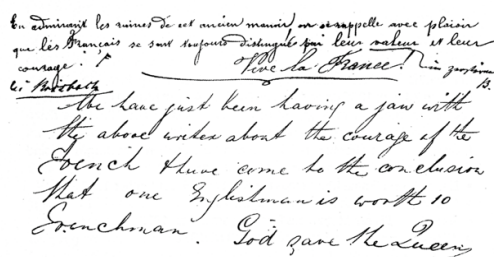 En admirant les ruines de cet ancien manoir, on se rappelle avec plaisir
que les Français se sont toujours distingués par leur valeur et leur
courage.
Vive la France!
We have just been having a jaw with
the above writer about the courage of the
French & have come to the conclusion
that one Englishman is worth 10
Frenchman. God save the Queen